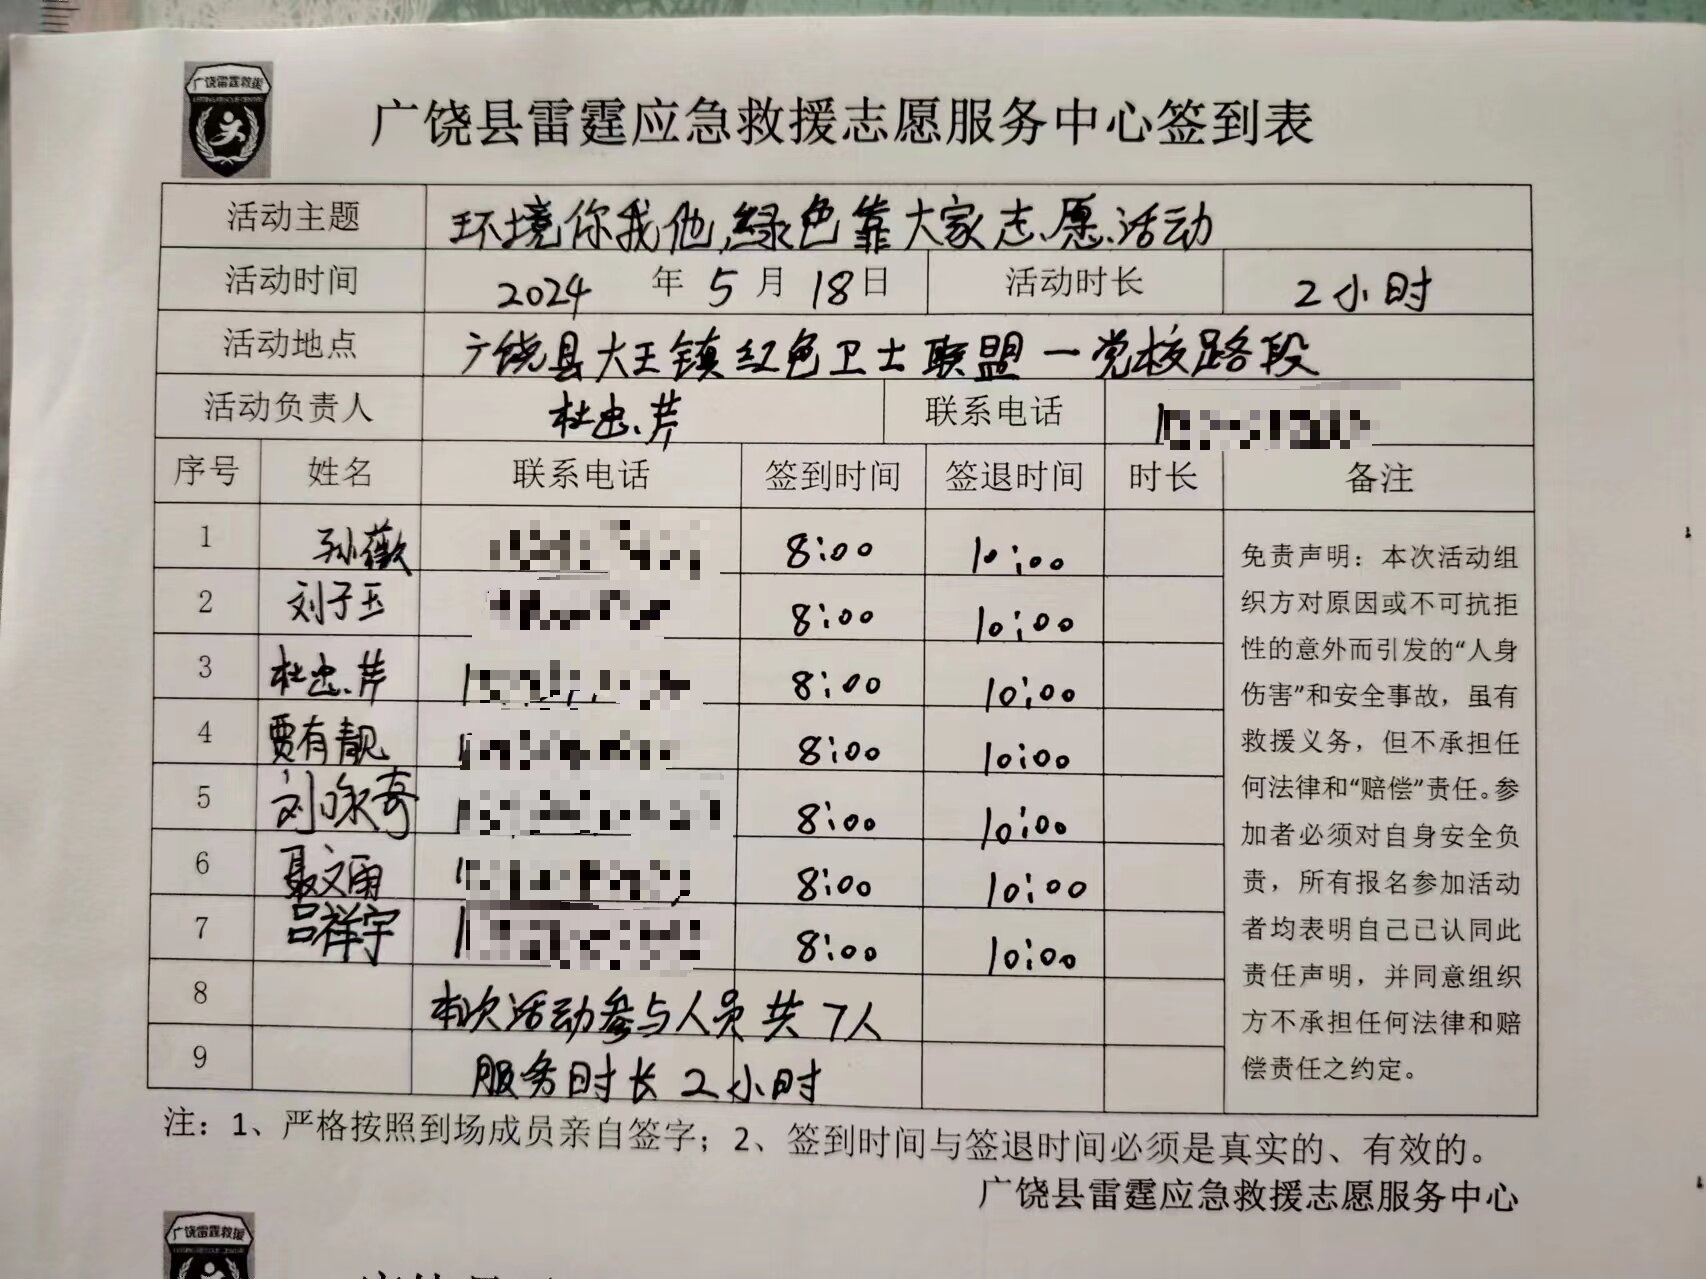 广饶雷霆救援
广饶县雷霆应急救援志愿服务中心签到表
活动主题 环境你我他,绿色靠大家志愿活动
活动时间 2024 年 5 月 18 日 活动时长 2小时
活动地点 广饶县大王镇红色卫士联盟一党校路段
活动负责人 杜忠芹 联系电话
序号 姓名 联系电话 签到时间 签退时间 时长 备注
1 孙薇 8:00 10:00
2 刘子玉 8:00 10:00
3 杜忠芹 8:00 10:00
4 贾有靓 8:00 10:00
5 刘咏奇 8:00 10:00
6 聂文雨 8:00 10:00
7 吕祥宇 8:00 10:00
8 本次活动参与人员共7人
9 服务时长2小时
免责声明：本次活动组
织方对原因或不可抗拒
性的意外而引发的“人身
伤害”和安全事故，虽有
救援义务，但不承担任
何法律和“赔偿”责任。参
加者必须对自身安全负
责，所有报名参加活动
者均表明自己已认同此
责任声明，并同意组织
方不承担任何法律和赔
偿责任之约定。
注：1、严格按照到场成员亲自签字；2、签到时间与签退时间必须是真实的、有效的。
广饶县雷霆应急救援志愿服务中心
广饶雷霆救援